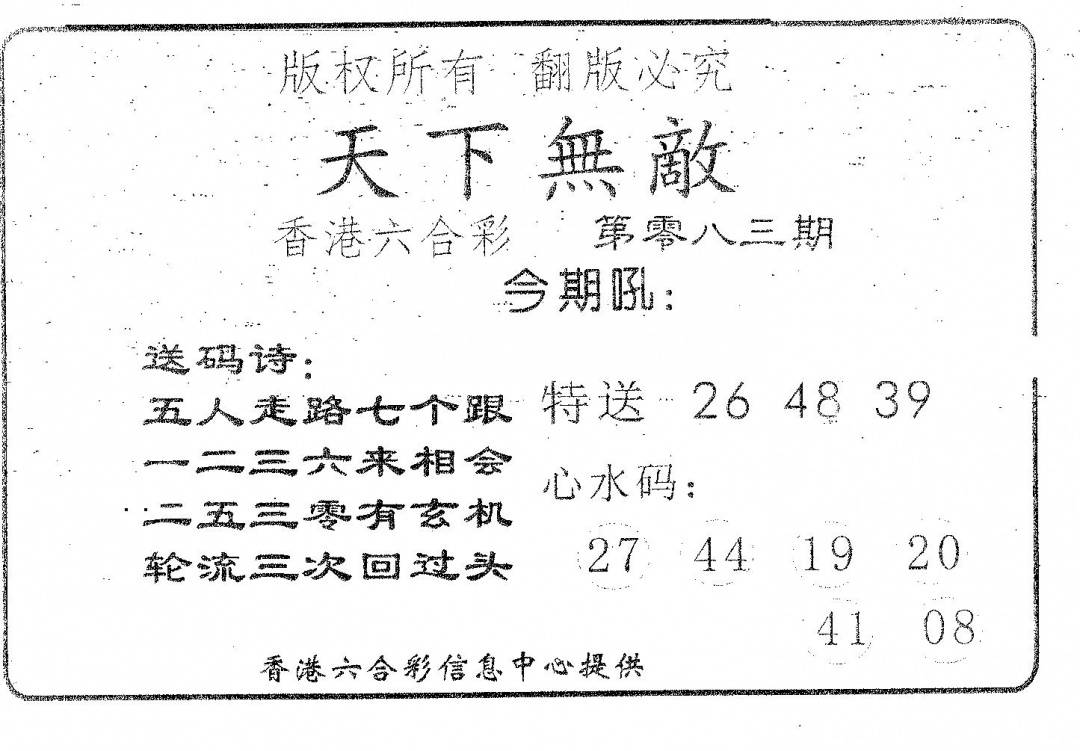 版权所有 翻版必究
天下無敵
香港六合彩 第零八三期
今期吼：
送码诗：
五人走路七个跟
一二三六来相会
二五三零有玄机
轮流三次回过头
特送 26 48 39
心水码：
27 44 19 20
41 08
香港六合彩信息中心提供